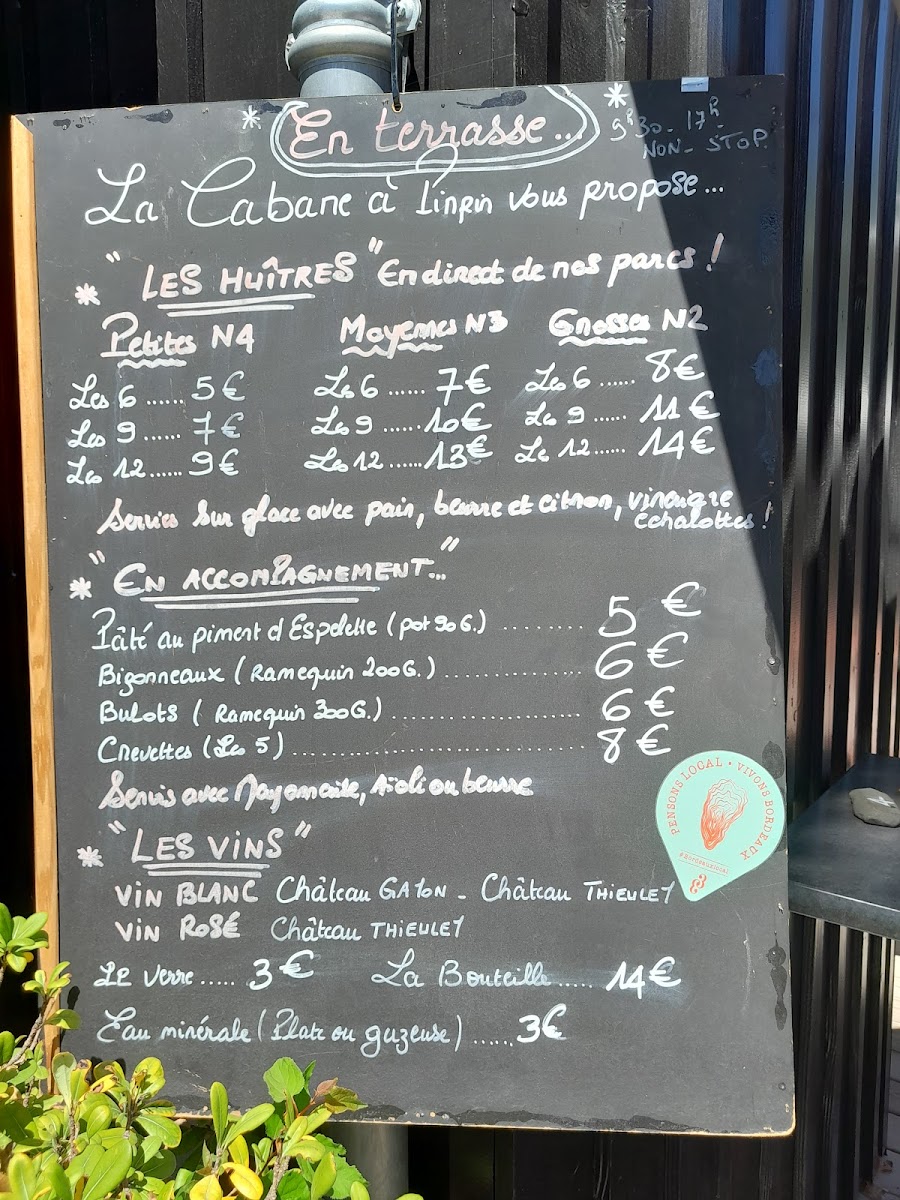 En terrasse...
9h30 - 17h
NON-STOP
La Cabane à vous propose...
"LES HUÎTRES" En direct de nos parcs !
Petites N4 Moyennes N3 Grosses N2
Les 6 ...... 5€ Les 6 ...... 7€ Les 6 ...... 8€
Les 9 ...... 7€ Les 9 ...... 10€ Les 9 ...... 11€
Les 12 ...... 9€ Les 12 ...... 13€ Le 12 ...... 14€
Servies sur glace avec pain, beurre et citron, vinaigre
échalottes !
"EN ACCOMPAGNEMENT..."
Pâté au piment d'Espelette (pot 90G.) ......... 5 €
Bigonneaux (Ramequin 200G.) ............... 6 €
Bulots (Ramequin 300G.) ................... 6 €
Crevettes (Les 5) ............................. 8 €
Servis avec Mayonnaise, Aïoli ou beurre
"LES VINS"
VIN BLANC Château GAYON - Château THIEULEY
VIN ROSÉ Château THIEULEY
LE Verre ..... 3€ La Bouteille ..... 14€
Eau minérale (Plate ou gazeuse) ...... 3€
PENSONS LOCAL • VIVONS BORDEAUX
#Bordeauxlocal
4